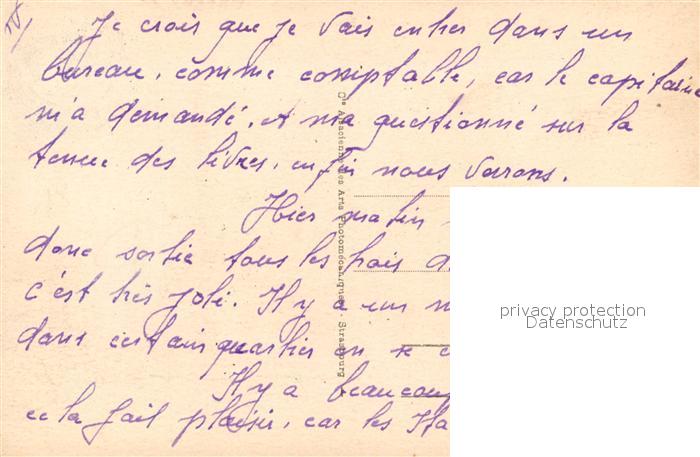 Je crois que je vais entrer dans un
bureau, comme comptable, car le capitaine
m'a demandé, et m'a questionné sur la
tenue des livres, enfin nous verons.
Hier matin
donc sortie tous les trois
c'est très joli. Il y a un
dans certain quartier on se
Il y a beaucoup
cela fait plaisir, car les
Cie Alsacienne des Arts Photomécaniques, Strasbourg
privacy protection
Datenschutz